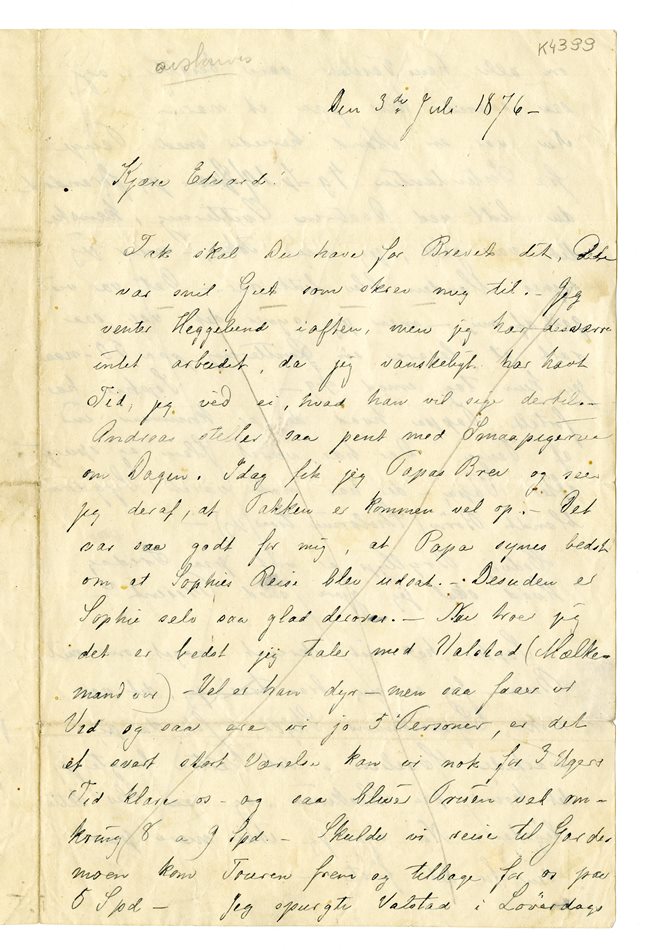 K4399
Den 3de Juli 1876 –
Kjære Edvard!
Tak skal Du have for Brevet dit,
var snil Griet som skrev mig til. – Jeg
venter Heggelund iaften, men jeg har desværre
intet arbeidet, da jeg vanskeligt har havt
Tid, jeg véd ei, hvad han vil sige dertil. –
Andreas steller saa pent med Smaapigerne
om Dagen. Idag fik jeg Papas Brev og seer
jeg deraf, at Pakken er kommen vel op. – Det
var saa godt for mig, at Papa synes bedst
om at Sophies Reise blev udsat. – Desuden er
Sophie selv saa glad derover. – Nu troer jeg
det er bedst jeg taler med Valstad (Mælke-
mand vor) – Vel er han dyr – men saa faaer vi
Ved og saa ere vi jo 5 Personer, er det
et svært stort Værelse kan vi nok for 3 Ugers
Tid klare os – og saa bliver Prisen vel om-
kring 8 a 9 Spd. – Skulde vi reise til Garder
moen kom Touren frem og tilbage for os paa
5 Spd – Jeg spurgte Valstad i Løverdags